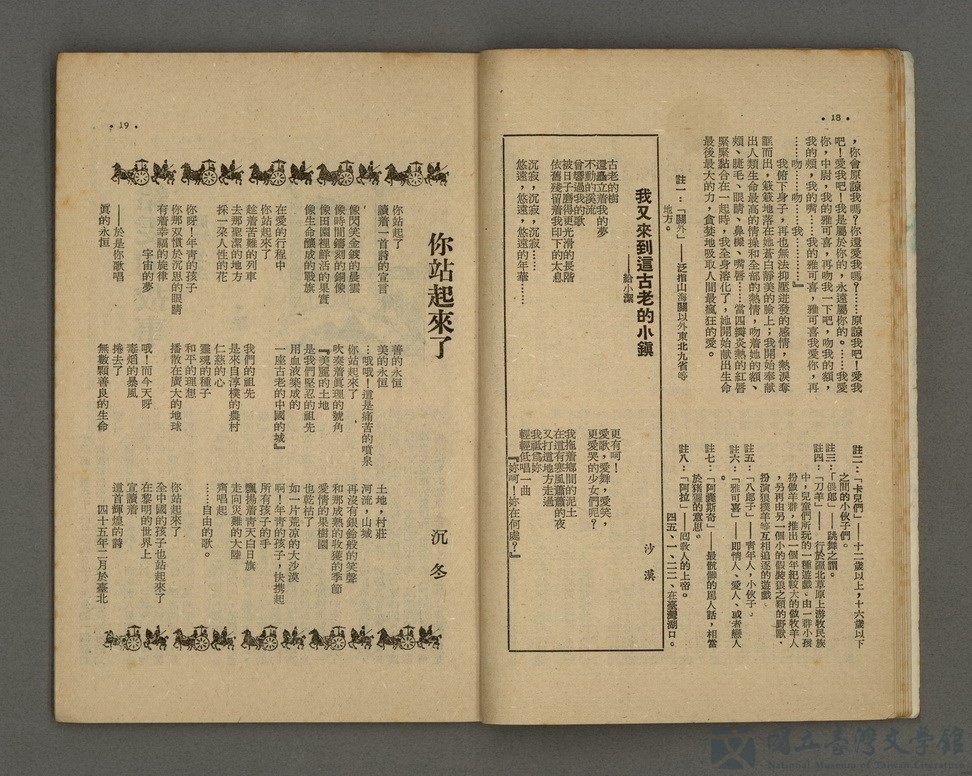 •18•
，你會原諒我嗎？你還愛我嗎？……原諒我吧！愛我
吧！愛我吧！我是屬於你的，永遠屬於你的。……我愛
你，中尉，我的雅可喜，再吻我一下吧，吻我的額，
我的頰，我的嘴……我的雅可喜，雅可喜我愛你，再
……吻……吻……』
我俯下身子，再也無法抑壓迸發的感情，熱淚奪
眶而出，簌簌地落在她蒼白靜美的臉上；我開始奉獻
出人類生命最高的情操和全部的熱情，吻着她的額、
頰、睫毛、眼睛、鼻樑、嘴唇……當四瓣炎熱的紅唇
緊緊黏合在一起時，我全身溶化了，她開始獻出生命
最後最大的力，貪婪地吸取人間最瘋狂的愛。
註一：「關外」——泛指山海關以外東北九省等
地方。
註二：「卡兒們」——十二歲以上，十六歲以下
之間的小伙子們。
註三：「偎郎」——跳舞之謂。
註四：「刀羊」——行於疆北草原上游牧民族
中，兒童們所玩的一種遊戲，由一群小孩
扮做羊群，推出一個年紀較大的做牧羊人
，另再由另一個小的假裝狼之類的野獸，
扮演狼撲羊等互相追逐的遊戲。
註五：「八郎子」——青年人，小伙子。
註六：「雅可喜」——即情人、愛人、或者戀人
註七：「阿囊斯奇」——最骯髒的罵人話，相當
於豬玀的意思。
註八：「阿拉」——回教人的上帝。
四五、一、二二、在臺灣湖口。
我又來到這古老的小鎮
——給小潔
沙漠
古老的樹
還矗立着我的夢
不動的溪流
曾響過我的歌
被日子磨得更光滑的長階
依舊殘留着我印下的太息
沉寂，沉寂，沉寂……
悠遠，悠遠，悠遠的年華……
更有呵！
愛歌，愛舞，愛笑，
更愛哭的少女們呢？
我拖着鄉間的泥土
在這有寒風蕭蕭的夜
又打這地方走過
我祗爲妳
輕輕低唱一曲
『妳呵！妳在何處？』
•19•
你站起來了
沉冬
你站起來了
讀着一首詩的宣言
，
像閃笑金鍍的晨雲
像時間鑄刻的銅像
像田園裡鮮活的果實
像生命釀成的戰旗
在愛的行程中
你站起來了
趁着苦難的列車
去那聖潔的地方
採一朵人性的花
你呀！年青的孩子
你那双慣於沉思的眼睛
有着幸福的旋律
宇宙的夢
——於是你歌唱
眞的永恒
善的永恒
美的永恒
…哦哦！這是痛苦的噴泉
你站起來了，
吹奏着眞理的號角
『美麗的土地
是我們堅忍的祖先
用血液築成的
一座古老的中國的城』
我們的祖先
是來自淳樸的農村
仁慈的心
靈魂的種子
和平的理想
播散在廣大的地球
哦！而今天呀
毒焰的暴風
捲去了
無數顆善良的生命
土地，村莊
河流，山城
再沒有銀鈴般的笑聲
和那成熟的收獲的季節
愛情的果樹園
也乾枯了
如一片荒凉的大沙漠
啊！年靑的孩子，快携起
所有孩子的手
飄揚着青天白日旗
走向災難的大陸
齊唱起
……自由的歌。
你站起來了
全中國的孩子也站起來了
在黎明的世界上
宣讀着
這首輝煌的詩
四十五年二月於臺北
國立臺灣文學館
National Museum of Taiwan Literature